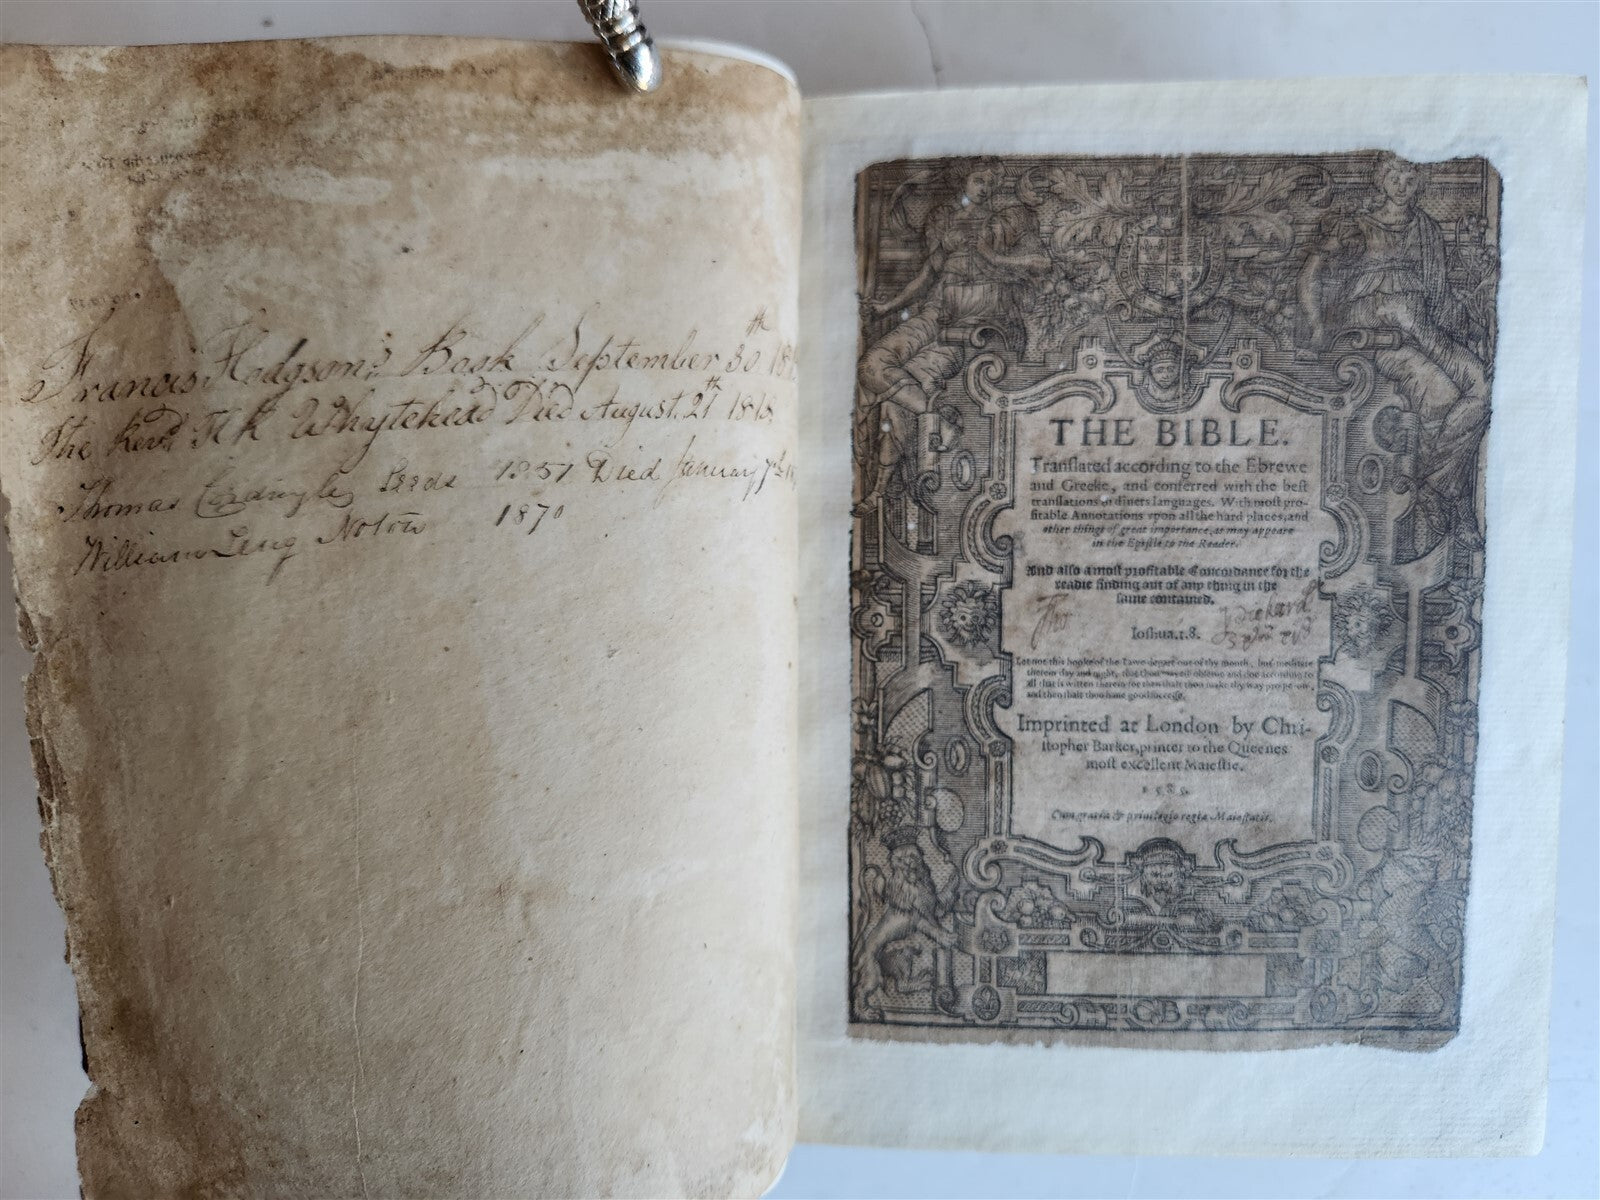 Francis Hodgson's Book September 30th
The Revd Whytehead Died August 2
Thomas Leeds 1851 Died January 7th
William 1870
THE BIBLE.
Tranſlated according to the Ebrewe
and Greeke, and conferred with the beſt
tranſlations in diuers languages. With moſt pro-
fitable Annotations vpon all the hard places, and
other things of great importance, as may appeare
in the Epiſtle to the Reader.
And alſo a moſt profitable Concordance for the
readie finding out of any thing in the
ſame contained.
Tho
Ioſhua.1.8.
Let not this booke of the Lawe depart out of thy mouth, but meditate
therein day and night, that thou mayeſt obſerue and doe according to
all that is written therein: for then ſhalt thou make thy way proſperous,
and then ſhalt thou haue good ſucceſſe.
Imprinted at London by Chri-
ſtopher Barker, printer to the Queenes
moſt excellent Maieſtie.
Cum gratia & priuilegio regiæ Maieſtatis.
CB